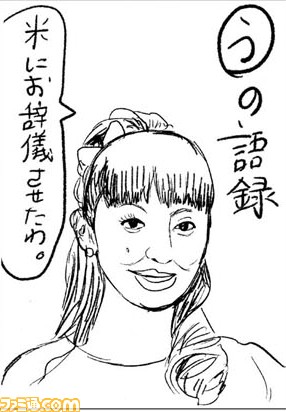 うの語録
米にお辞儀させたわ。
ファミ通.com